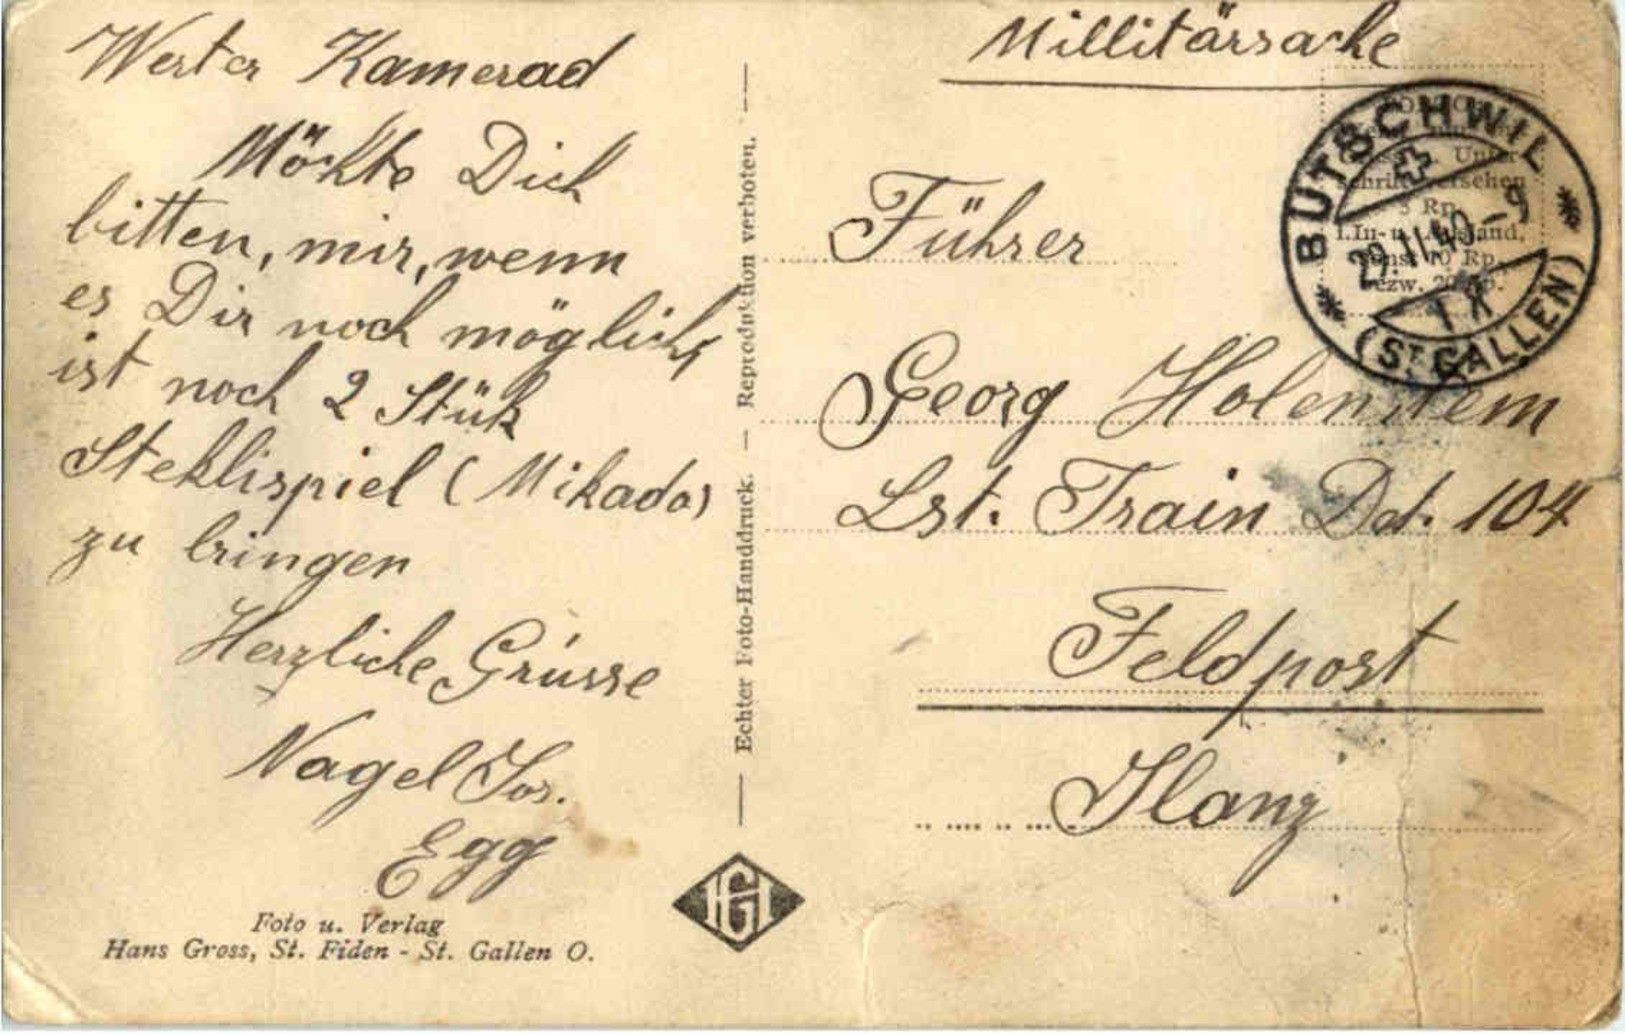 Millitärsache
Werter Kamerad
Möchte Dich
bitten, mir, wenn
es Dir noch möglich
ist noch 2 Stük
Steklispiel (Mikado)
zu bringen
Herzliche Grüsse
Nagel Jos.
Egg
Foto u. Verlag
Hans Gross, St. Fiden - St. Gallen O.
Echter Foto-Handdruck. — Reproduktion verboten.
HG
BÜTSCHWIL
29.II.40-9
(ST. GALLEN)
Unter-
schrift
5 Rp.
I. In- u. Ausland,
sonst 10 Rp.,
bezw. 20 Rp.
Führer
Georg Holenstein
Lst. Train Det. 104
Feldpost
Ilanz